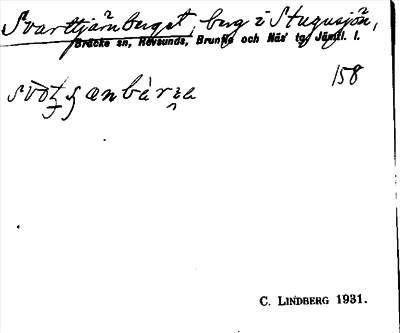 Svarttjärnberget, berg i Stugusjön,
Bräcke sn, Revsunds, Brunflo och Näs' tg, Jämtl. l.
158
C. LINDBERG 1931.